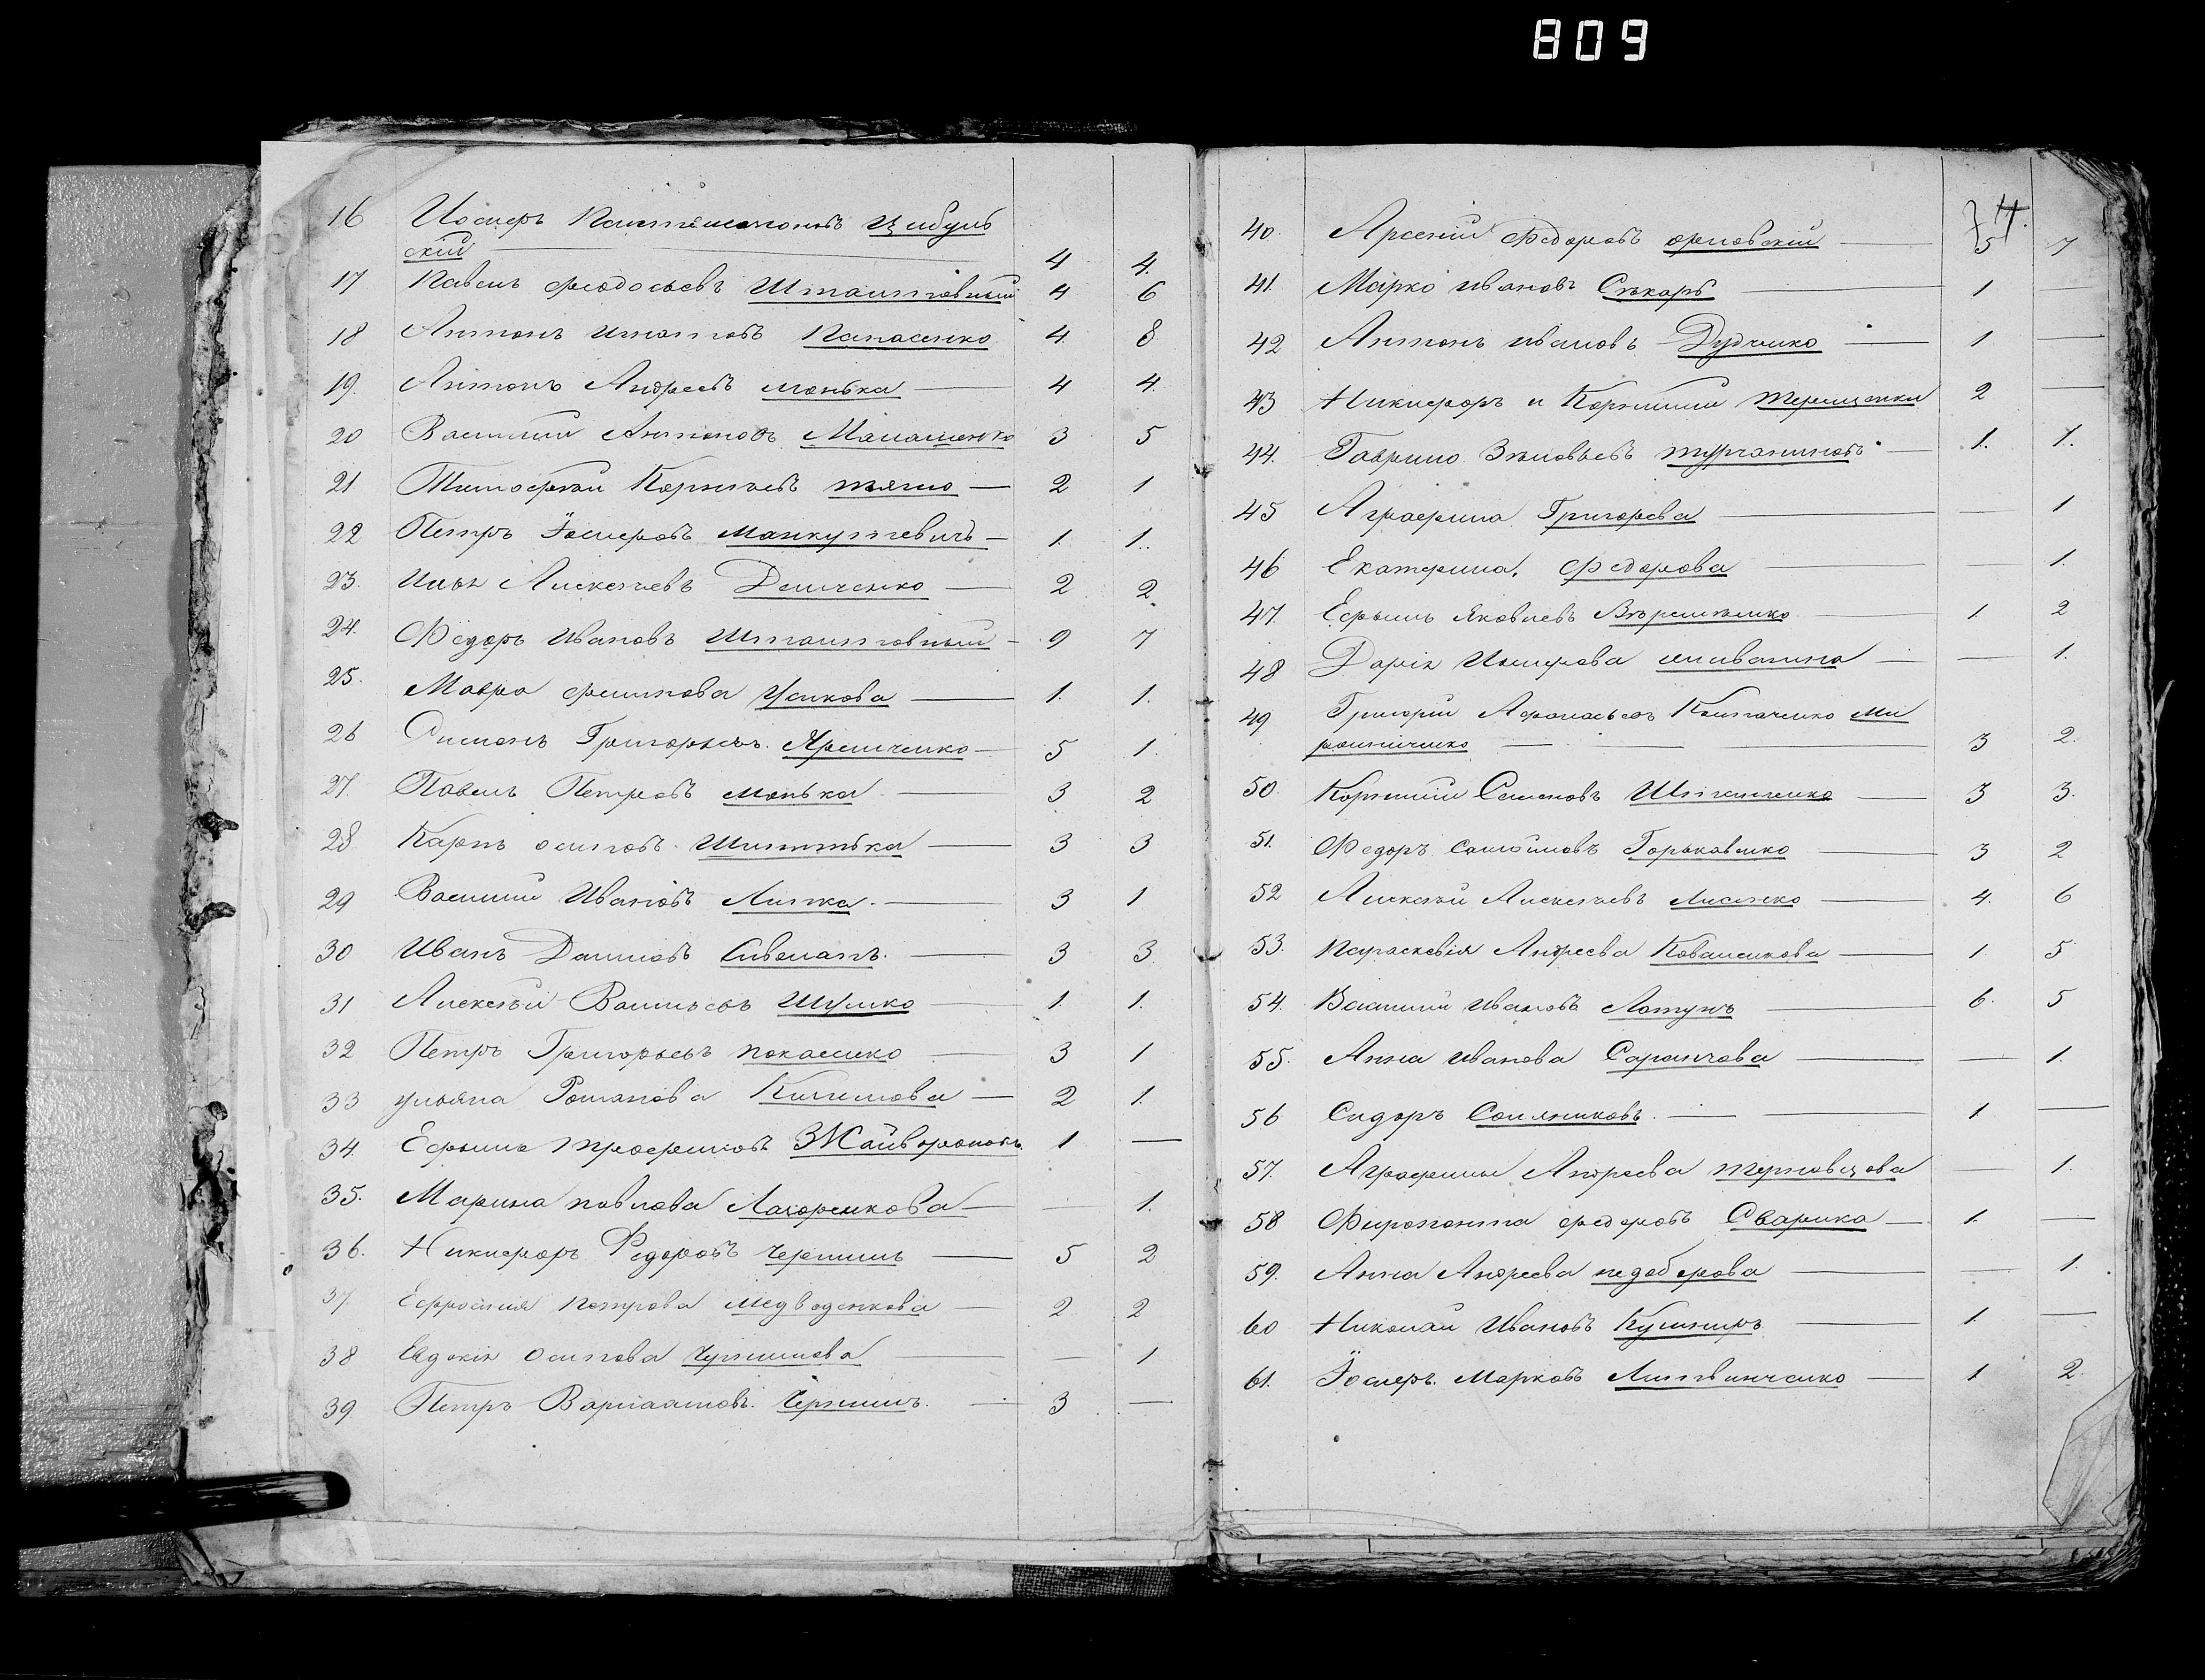 809
16 Иосифъ Пантелимоновъ Цибуль
скій 4 4.
17 Павелъ Феодосьевъ Штантовный 4 6
18 Антонъ Игнатовъ Панасенко 4. 8
19. Антонъ Андреевъ Монька — 4 4.
20 Василий Антоновъ Малашенко 3 5
21 Тимофѣй Корнѣевъ тягно — 2 1
22 Петръ Іосифовъ Манкутевичъ — 1. 1.
23. Илья Алексѣевъ Демченко — 2 2.
24. Федоръ Ивановъ Штантовный — 9 7
25. Мавра Филипова Усикова — 1. 1.
26 Симонъ Григорьевъ Яремченко — 5 1.
27. Павелъ Петровъ Монька — 3 2
28 Карпъ Осиповъ — 3 3
29 Василий Ивановъ Липка — 3 1
30 Иванъ Даниловъ Сиволапъ. — 3 3.
31 Алексѣй Васильевъ Шулико — 1. 1.
32 Петръ Григорьевъ покасенко — 3 1
33 Ульяна Романова — 2 1.
34. Ефимъ Трофимовъ Жайвороновъ 1 —
35. Марина павлова Лазоренкова — — 1.
36. Никифоръ Федоровъ Чернишъ — 5 2
37 Ефросинія петрова Медведенкова — 2 2
38 Евдокія Осипова Чернишова — — 1
39 Петръ Варлаамовъ. Чернишъ. — 3 —
40. Арсений Федоровъ орловскій — 5 7
41. Марко Ивановъ Сѣкаръ — 1
42 Антонъ Ивановъ Дудченко — 1 —
43 Никифоръ и Корнилий терещенки 2 —
44. Гаврило Зѣновьевъ турчаниновъ — 1. 1.
45 Аграфина Григорева — 1
46 Екатерина. Федорова — 1.
47. Ефимъ Яковлевъ — 1. 2
48 Дарія Иосифова — — 1.
49 Григорій Афанасьевъ Ми
рошниченко — 3 2.
50. Корнилий Семеновъ — 3 3.
51. Федоръ Самойловъ Горьковенко — 3 2
52 Алексѣй Алексѣевъ Лисенко — 4. 6
53. Параскевія Андреева Коваленкова — 1 5
54. Василий Ивановъ — 6. 5
55. Анна Иванова Саранчова — — 1.
56 Сидоръ Соляниковъ. — 1 —
57. Аграфина Андреева терновцова — 1.
58 Фирапонта федоровъ Сварика — 1. —
59. Анна Андреева недоберова — — 1.
60 Николай Ивановъ Кушниръ — 1. —
61. Іосифъ. Марковъ Литвинченко — 1 2.